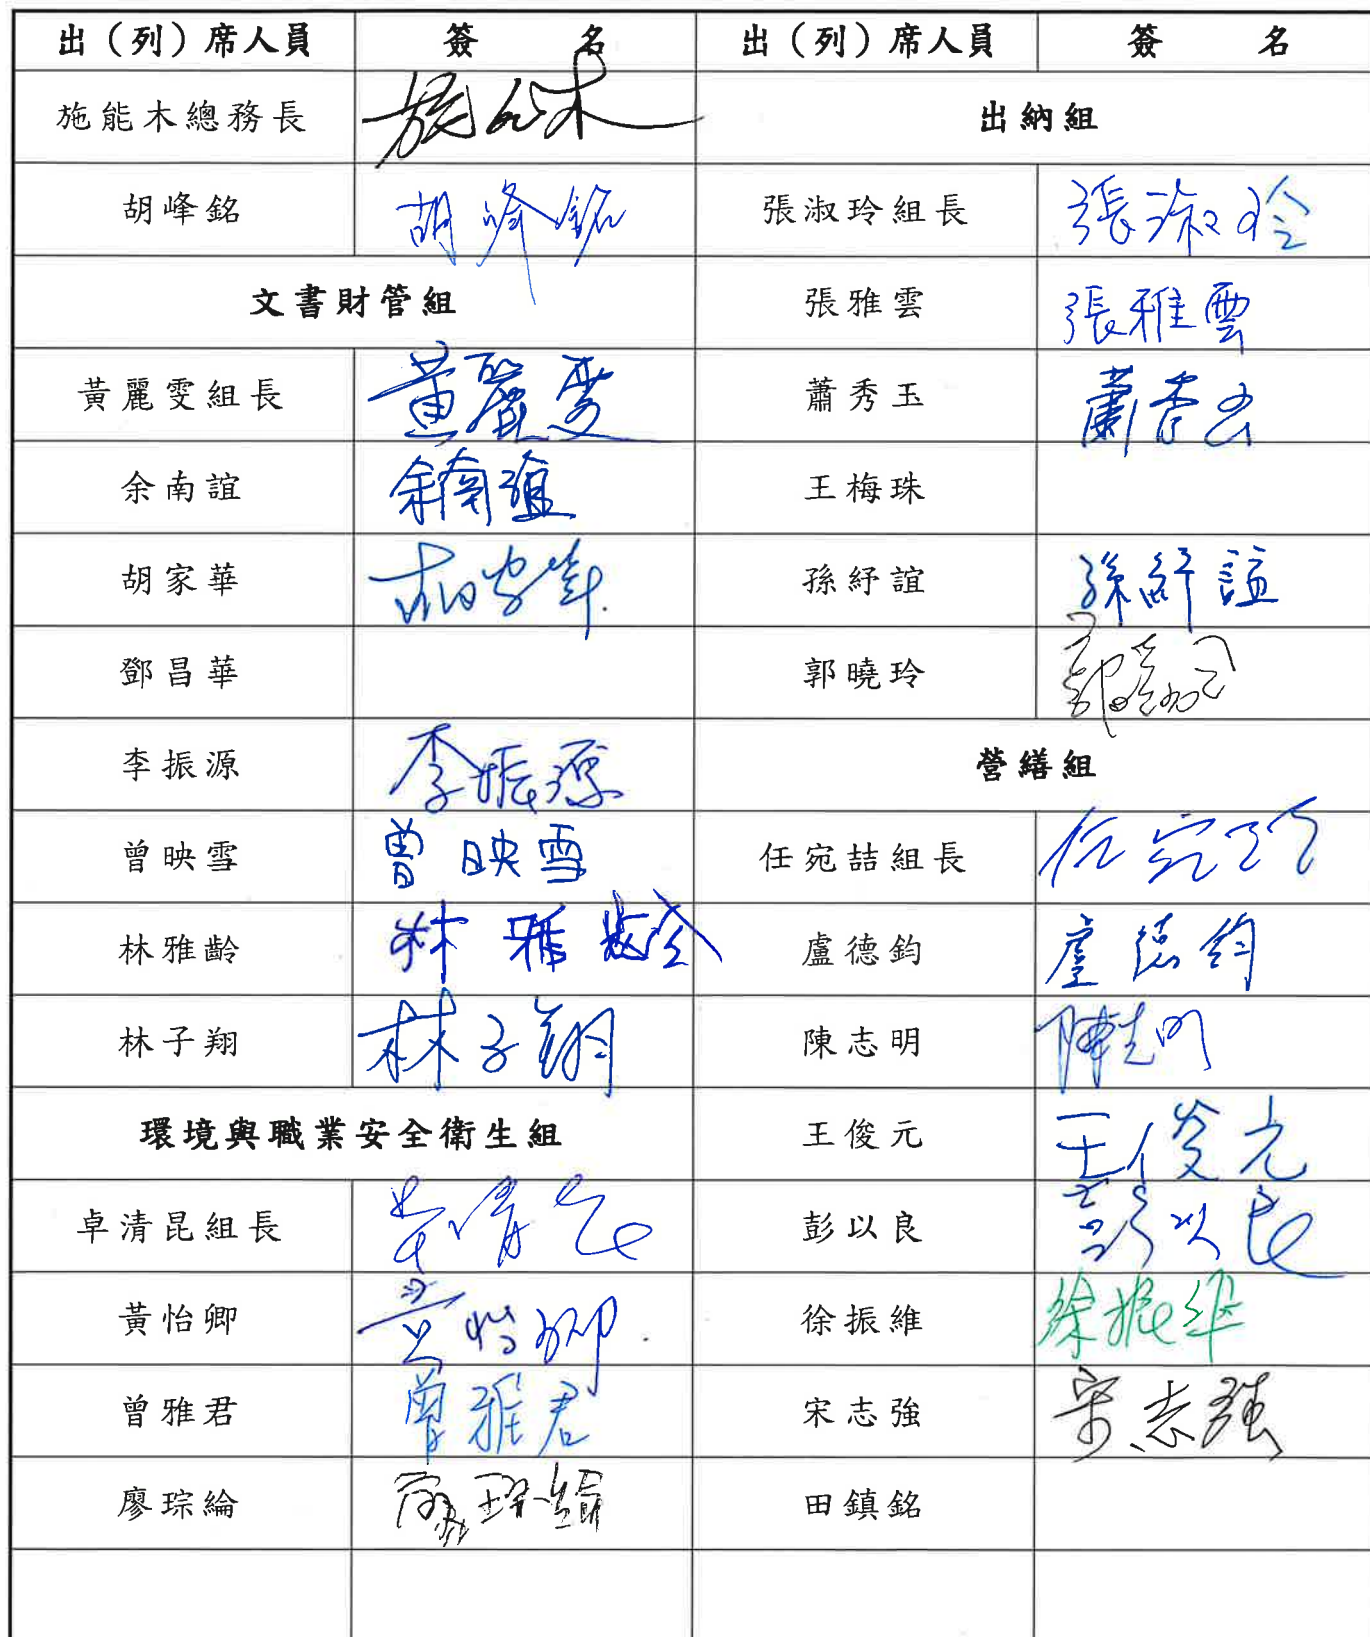 出（列）席人員 簽 名 出（列）席人員 簽 名
施能木總務長 施能木 出納組
胡峰銘 胡峰銘 張淑玲組長 張淑玲
文書財管組 張雅雲 張雅雲
黃麗雯組長 黃麗雯 蕭秀玉 蕭秀玉
余南誼 余南誼 王梅珠
胡家華 胡家華 孫紓誼 孫紓誼
鄧昌華 郭曉玲 郭曉玲
李振源 李振源 營繕組
曾映雪 曾映雪 任宛喆組長 任宛喆
林雅齡 林雅齡 盧德鈞 盧德鈞
林子翔 林子翔 陳志明 陳志明
環境與職業安全衛生組 王俊元 王俊元
卓清昆組長 卓清昆 彭以良 彭以良
黃怡卿 黃怡卿 徐振維 徐振維
曾雅君 曾雅君 宋志強 宋志強
廖琮綸 廖琮綸 田鎮銘